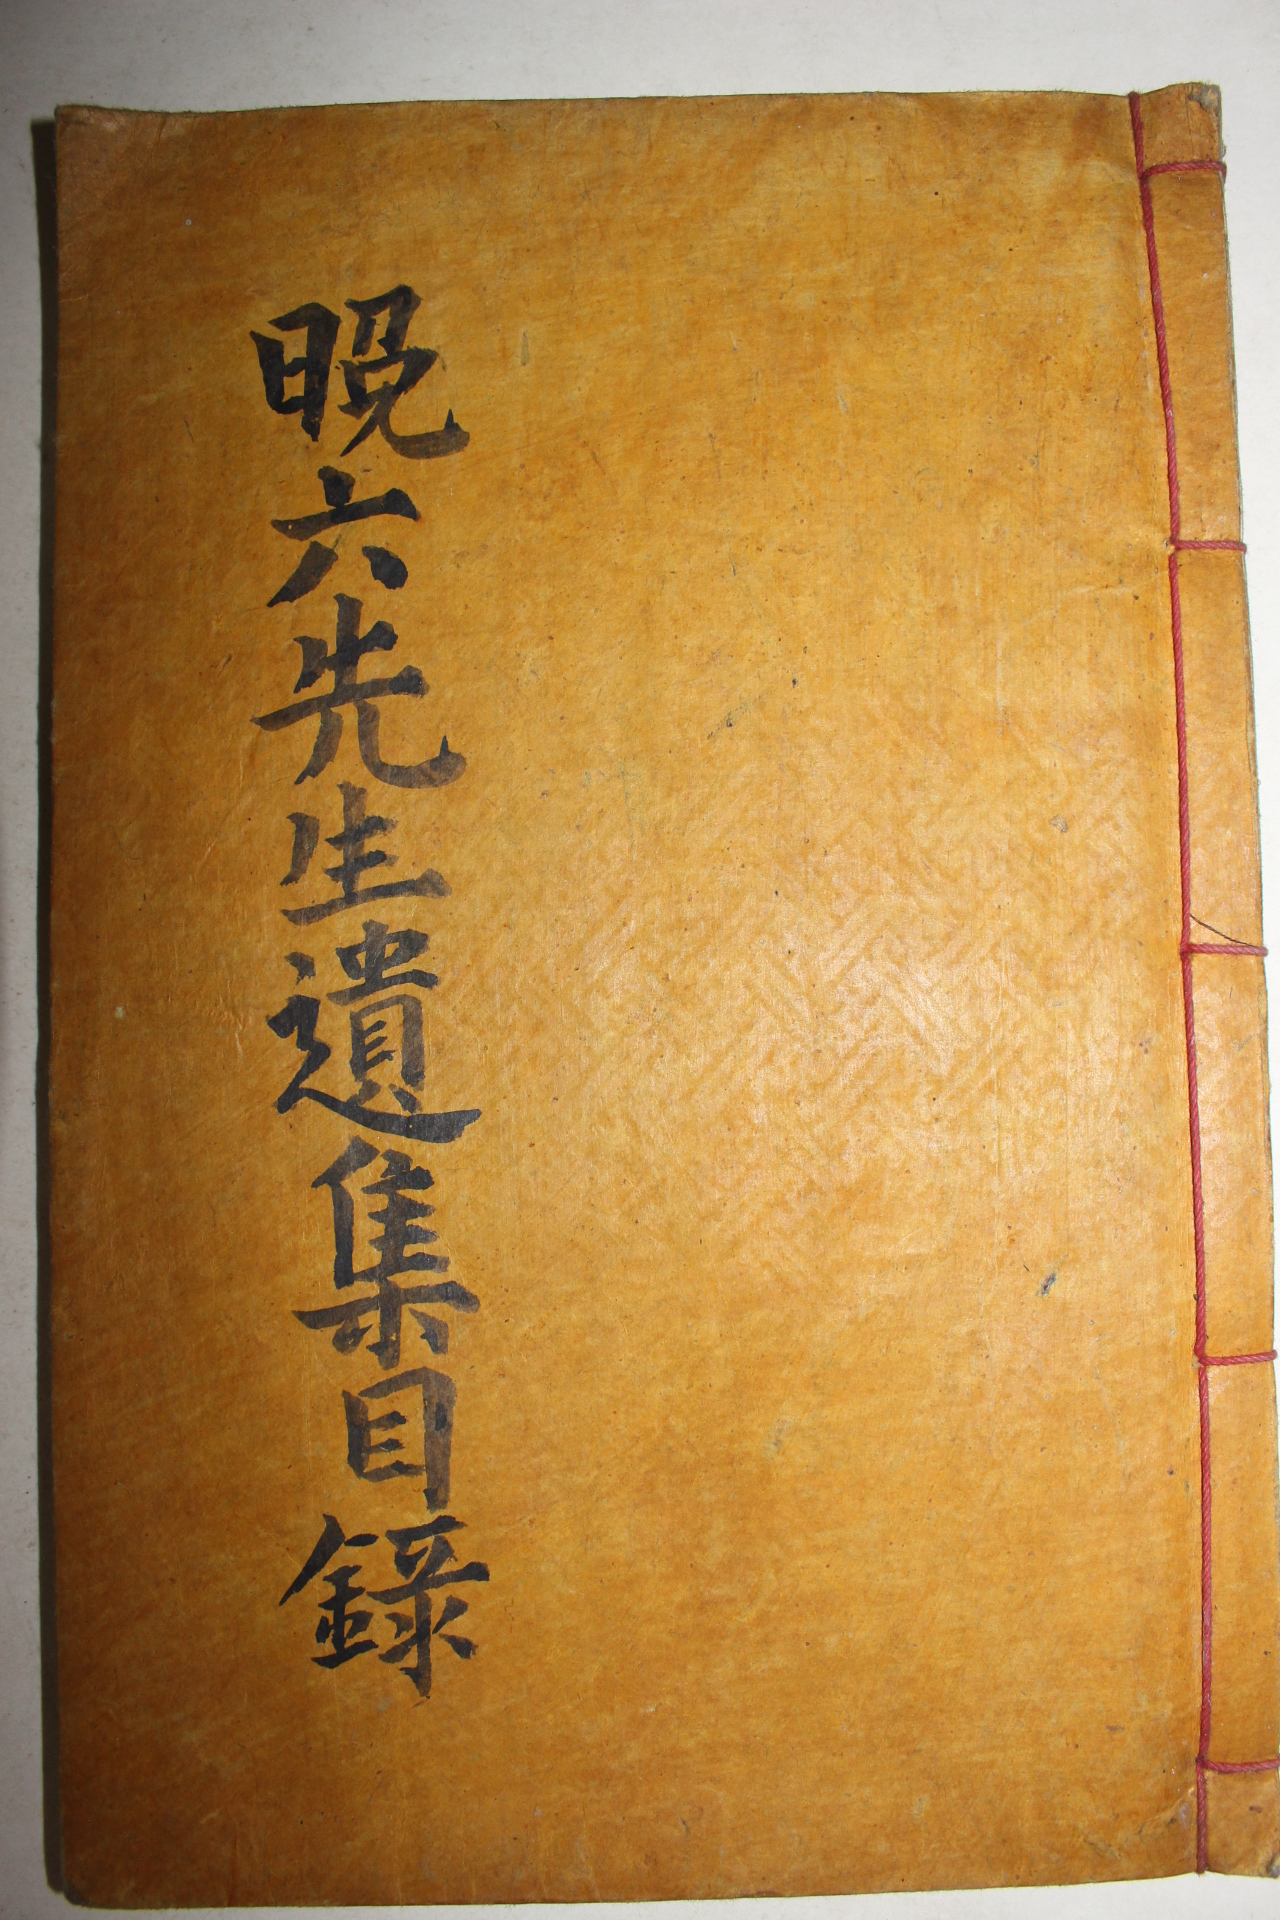 晩六先生遺集目錄